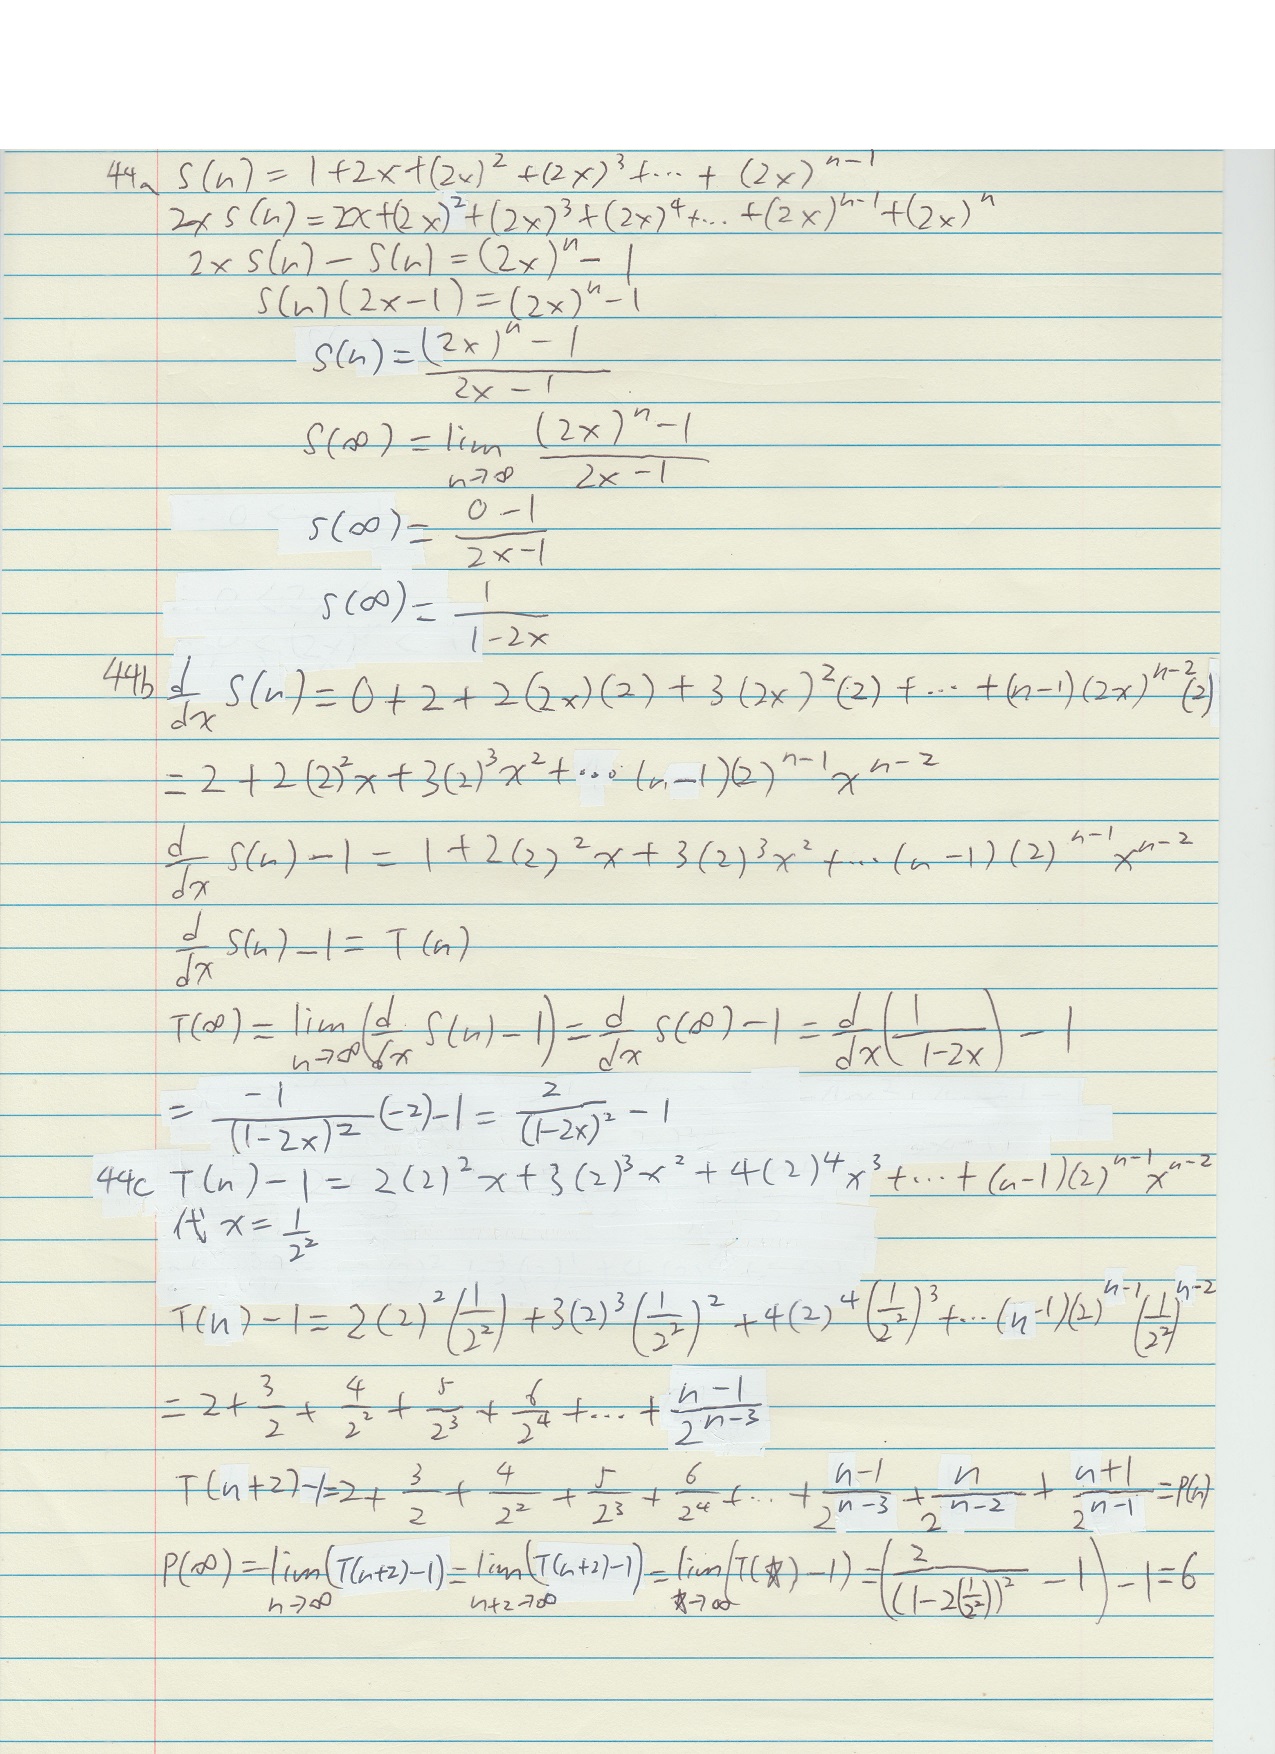 44a S(n) = 1+2x+(2x)^2+(2x)^3+...+(2x)^{n-1}
2x S(n) = 2x+(2x)^2+(2x)^3+(2x)^4+...+(2x)^{n-1}+(2x)^n
2x S(n) - S(n) = (2x)^n - 1
S(n)(2x-1) = (2x)^n - 1
S(n) = \frac{(2x)^n - 1}{2x-1}
S(∞) = \lim_{n→∞} \frac{(2x)^n - 1}{2x-1}
S(∞) = \frac{0-1}{2x-1}
S(∞) = \frac{1}{1-2x}
44b \frac{d}{dx} S(n) = 0+2+2(2x)(2)+3(2x)^2(2)+...+(n-1)(2x)^{n-2}(2)
= 2+2(2)^2x+3(2)^3x^2+...(n-1)(2)^{n-1}x^{n-2}
\frac{d}{dx} S(n)-1 = 1+2(2)^2x+3(2)^3x^2+...(n-1)(2)^{n-1}x^{n-2}
\frac{d}{dx} S(n)-1 = T(n)
T(∞) = \lim_{n→∞} (\frac{d}{dx} S(n)-1) = \frac{d}{dx} S(∞)-1 = \frac{d}{dx} (\frac{1}{1-2x}) - 1
= \frac{-1}{(1-2x)^2}(-2)-1 = \frac{2}{(1-2x)^2} - 1
44c T(n)-1 = 2(2)^2x+3(2)^3x^2+4(2)^4x^3+...+(n-1)(2)^{n-1}x^{n-2}
代 x = \frac{1}{2^2}
T(n)-1 = 2(2)^2(\frac{1}{2^2})+3(2)^3(\frac{1}{2^2})^2+4(2)^4(\frac{1}{2^2})^3+...(n-1)(2)^{n-1}(\frac{1}{2^2})^{n-2}
= 2+\frac{3}{2}+\frac{4}{2^2}+\frac{5}{2^3}+\frac{6}{2^4}+...+\frac{n-1}{2^{n-3}}
T(n+2)-1=2+\frac{3}{2}+\frac{4}{2^2}+\frac{5}{2^3}+\frac{6}{2^4}+...+\frac{n-1}{2^{n-3}}+\frac{n}{2^{n-2}}+\frac{n+1}{2^{n-1}}=P(n)
P(∞) = \lim_{n→∞}(T(n+2)-1) = \lim_{n+2→∞}(T(n+2)-1) = \lim_{★→∞}(T(★)-1) = (\frac{2}{(1-2(\frac{1}{2^2}))^2} - 1) - 1 = 6